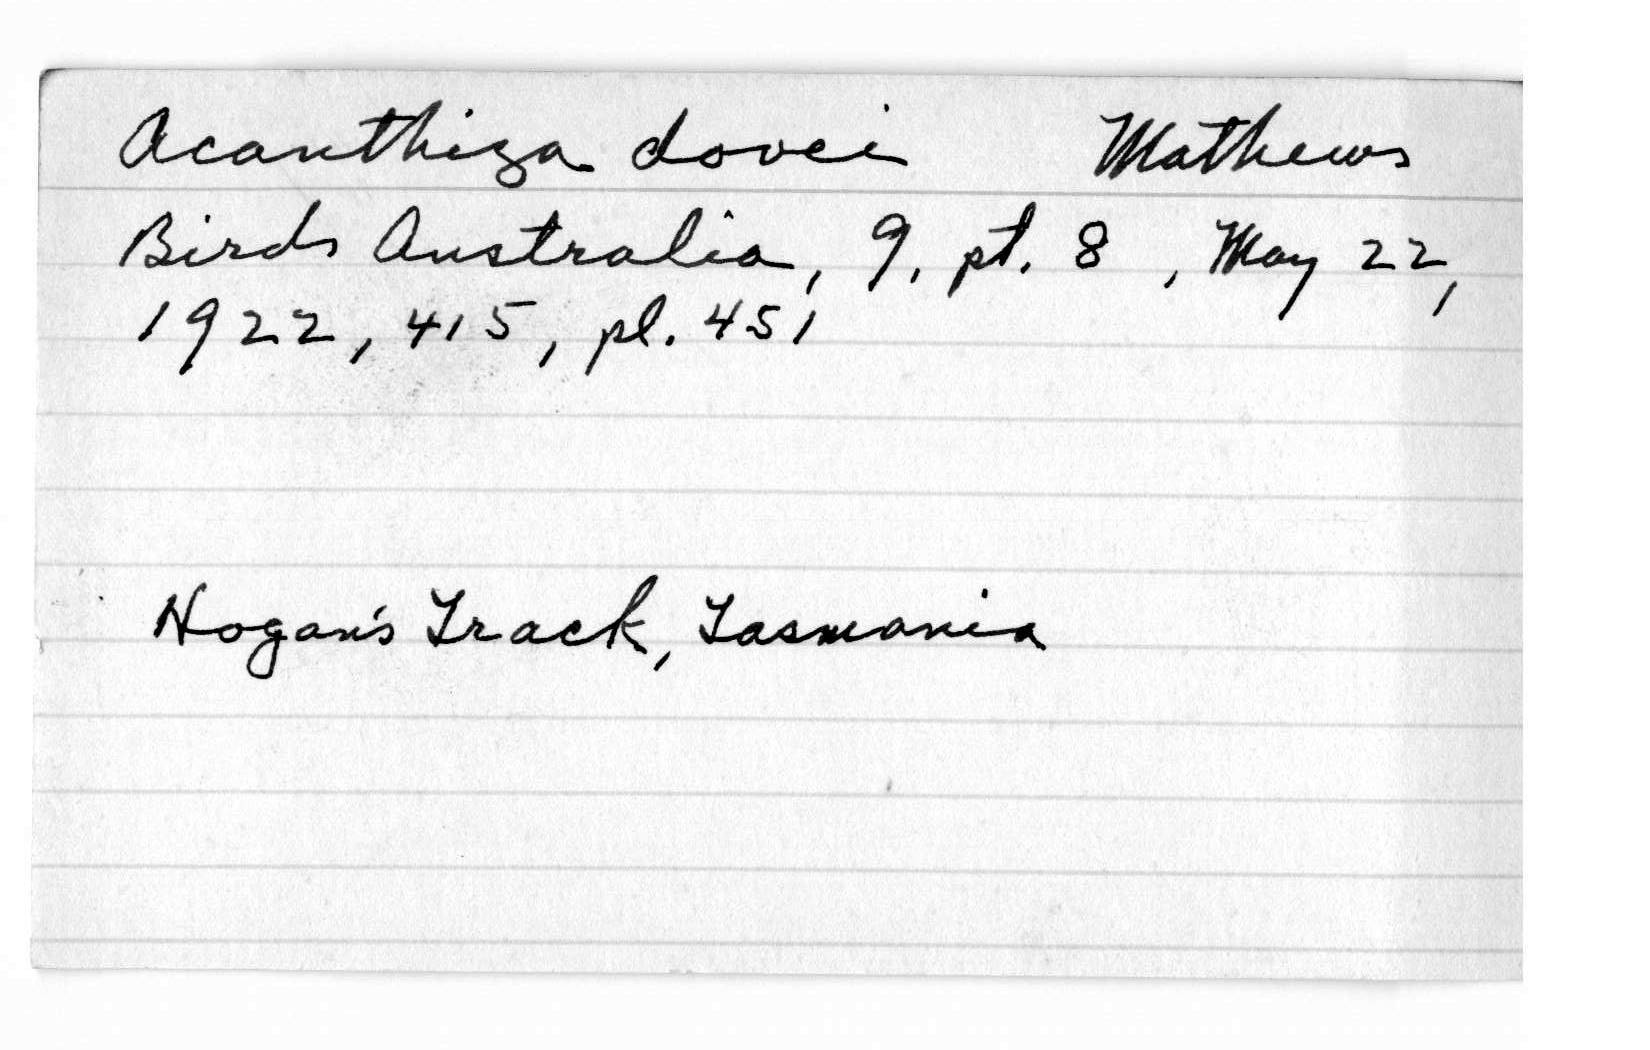 Acanthiza dovei Mathews
Birds Australia, 9, pt. 8, May 22,
1922, 415, pl. 451
Hogan's Track, Tasmania